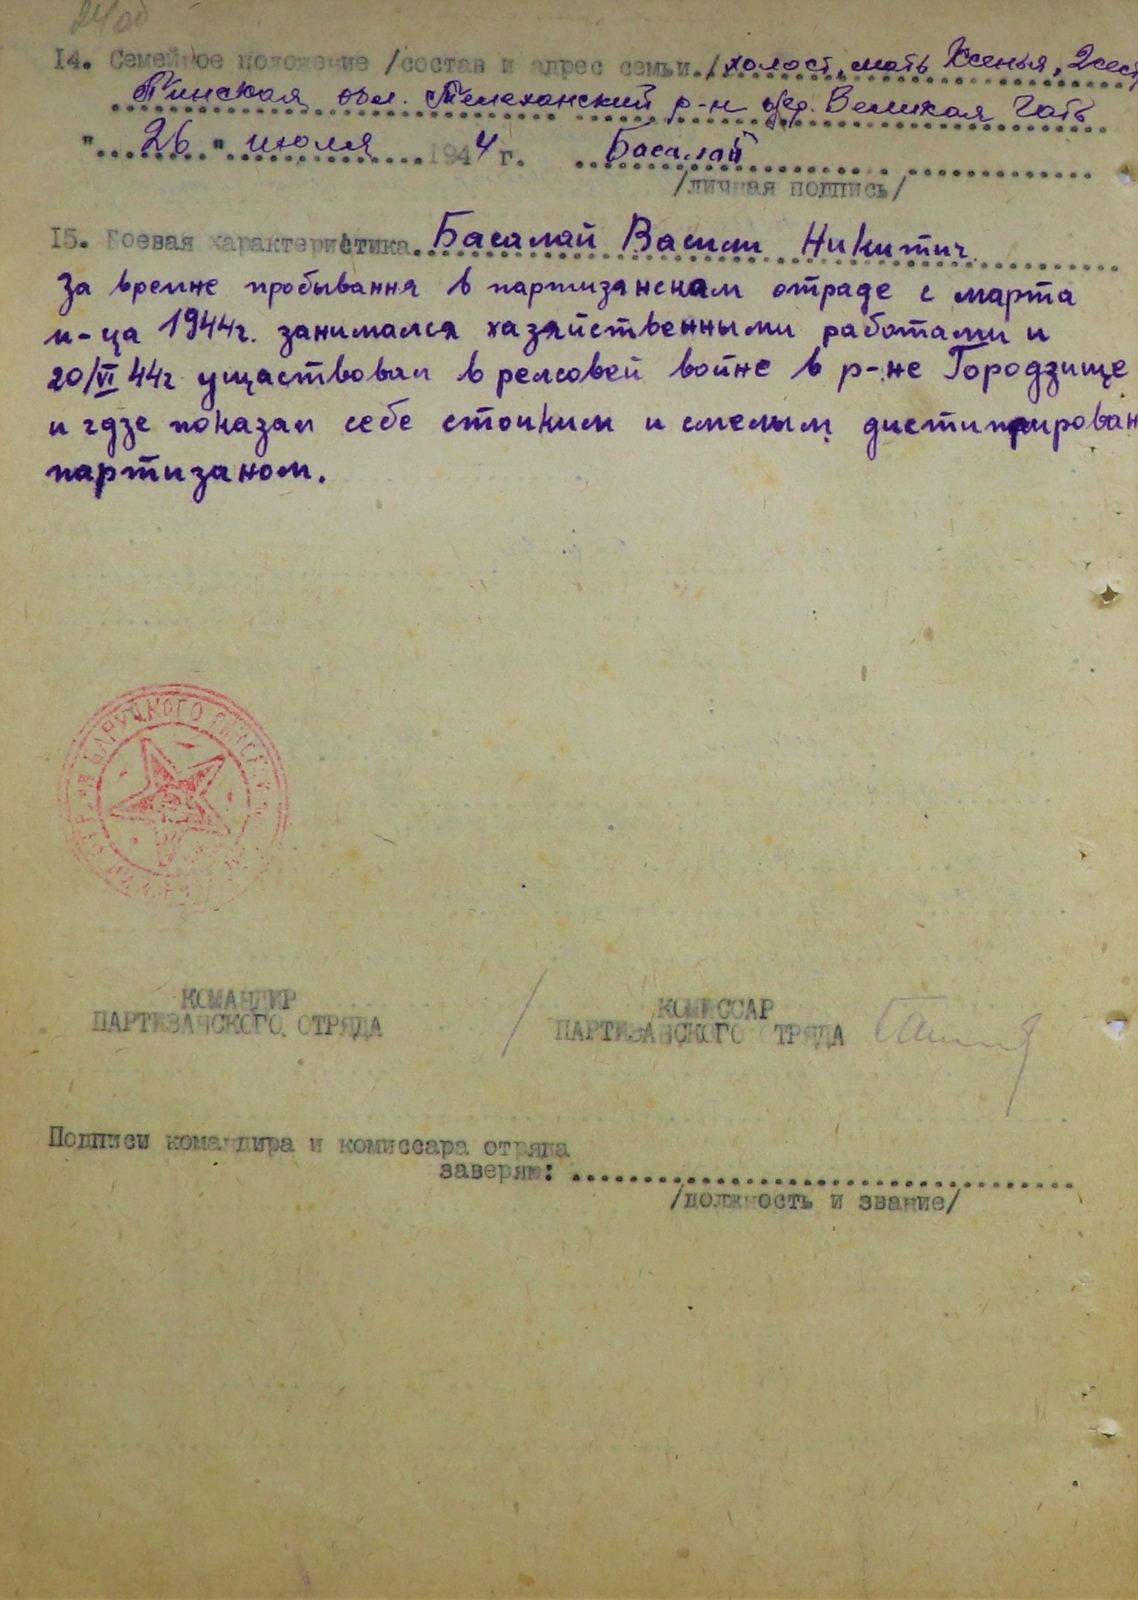 24об
14. Семейное положение /состав и адрес семьи./холост, мать Ксенья, 2 сест
Пинская обл. Телеханский р-н дер. Великая Гать
"26" июля 1944 г. Басалай
/личная подпись/
15. Боевая характеристика. Басалай Васили Никитич.
За времне пробывання в партизанском отраде с марта
м-ца 1944г. занимался хазяйственными работами и
20/VI 44г ущаствовал в релсовей войне в р-не Городзище
и гдзе показал себе стоиким и смелым дистиплирован
партизаном.
КОМАНДИР
ПАРТИЗАНСКОГО ОТРЯДА /
КОМИССАР
ПАРТИЗАНСКОГО ОТРЯДА
Подписи командира и комиссара отряда
заверяю:
/должность и звание/